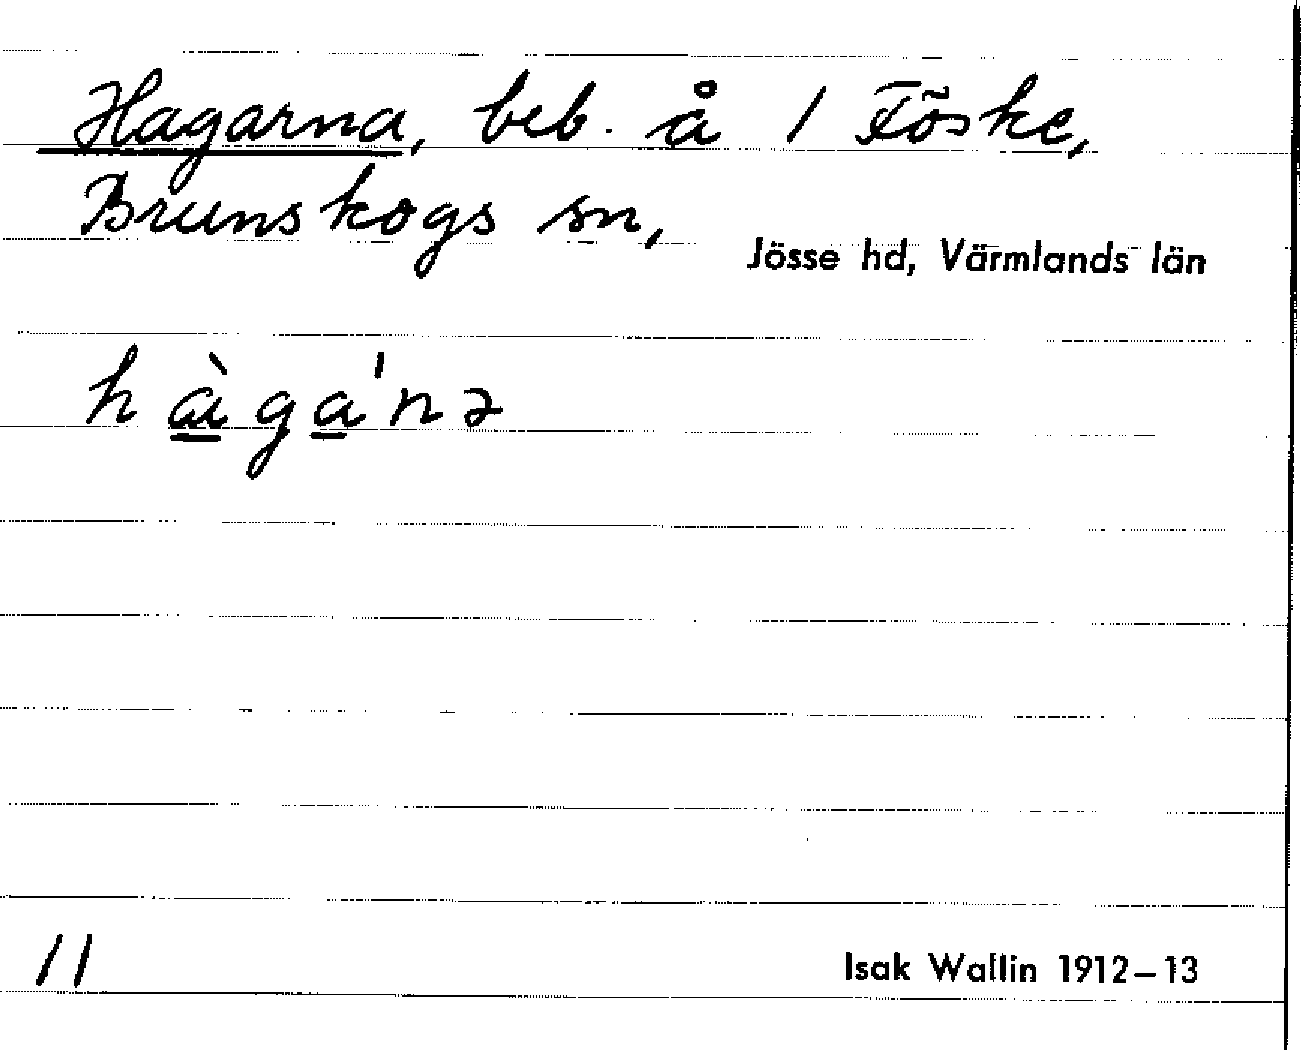 Hagarna, beb. å 1 Föske,
Brunskogs sn,
Jösse hd, Värmlands län
hàga'nə
11
Isak Wallin 1912–13